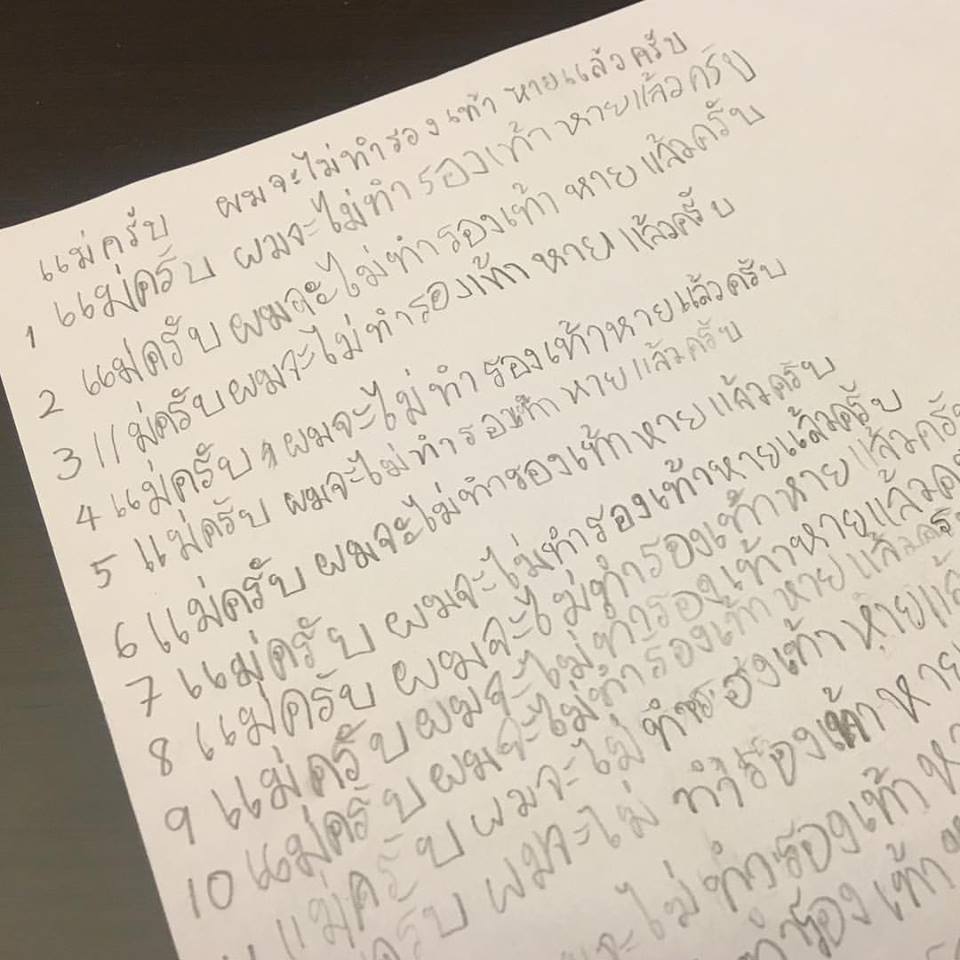 แม่ครับ ผมจะไม่ทำรองเท้า หายแล้วครับ
1 แม่ครับ ผมจะไม่ทำรองเท้าหายแล้วครับ
2 แม่ครับผมจะไม่ทำรองเท้า หายแล้วครับ
3 แม่ครับผมจะไม่ทำรองเท้า หายแล้วครับ
4 แม่ครับ ผมจะไม่ทำรองเท้าหายแล้วครับ
5 แม่ครับ ผมจะไม่ทำรองเท้า หายแล้วครับ
6 แม่ครับ ผมจะไม่ทำรองเท้าหายแล้วครับ
7 แม่ครับ ผมจะไม่ทำรองเท้าหายแล้วครับ
8 แม่ครับ ผมจะไม่ทำรองเท้าหายแล้วครับ
9 แม่ครับผมจะไม่ทำรองเท้าหายแล้ว
10 แม่ครับผมจะไม่ทำรองเท้าหายแล้ว
แม่ครับ ผมจะไม่ ทำรองเท้า หาย
ครับ ผมจะไม่ ทำรองเท้า หาย
จะไม่ ทำรองเท้า
ทำรองเท้า